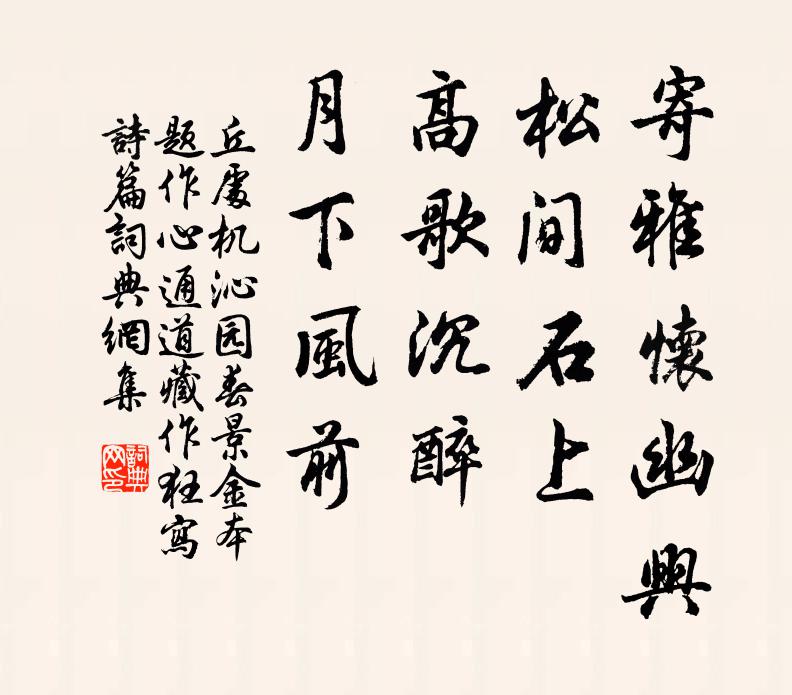 寄雅懷幽興
松间石上
高歌沉醉
月下風前
丘處机沁园春景金本
题作心通道藏作狂寫
詩篇詞典網集
詞典网印